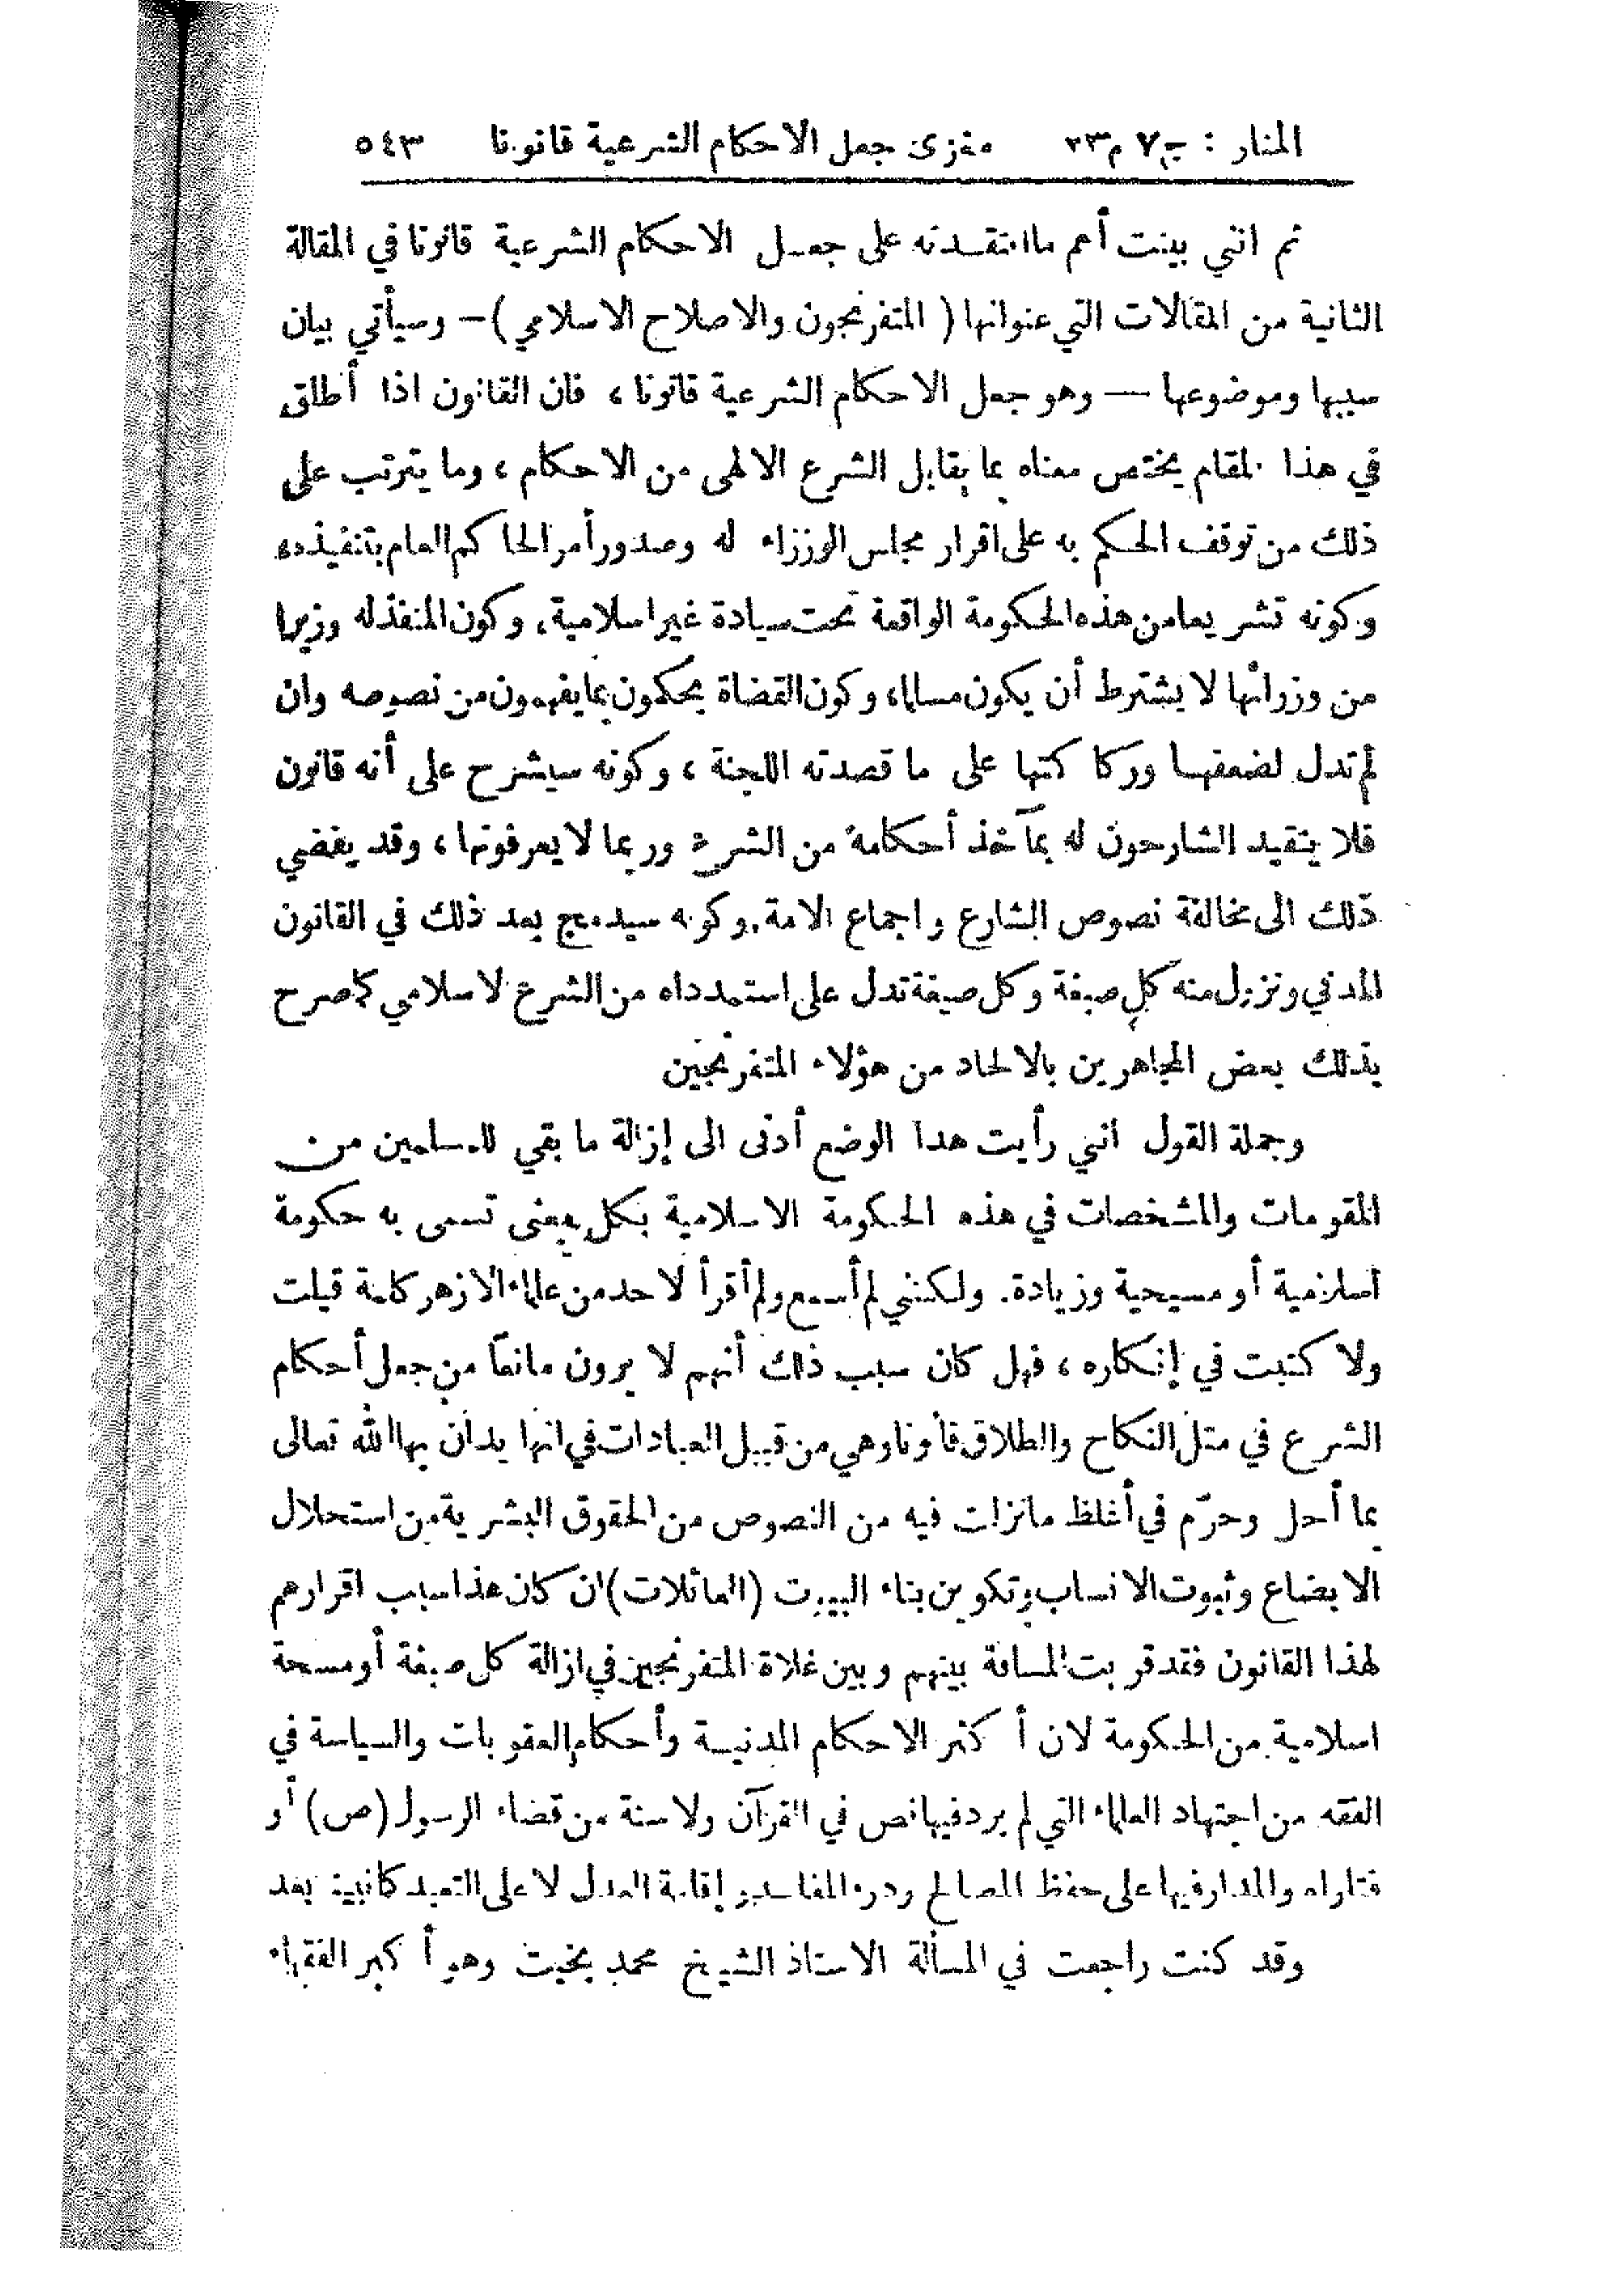 المنار : ج ٧ م ٢٣ مغزى جعل الاحكام الشرعية قانونا ٥٤٣
ثم انني بينت أهم ما انتقدته على جعل الاحكام الشرعية قانونا في المقالة
الثانية من المقالات التي عنوانها ( المتفرنجون والاصلاح الاسلامي ) – وسيأتي بيان
سببها وموضوعها — وهو جعل الاحكام الشرعية قانونا ، فان القانون اذا أطلق
في هذا المقام يختص معناه بما يقابل الشرع الالهى من الاحكام ، وما يترتب على
ذلك من توقف الحكم به على اقرار مجلس الوزراء له وصدور أمر الحاكم العام بتنفيذه
وكونه تشريعا من هذه الحكومة الواقعة تحت سيادة غير اسلامية ، وكون المنفذ له وزيرا
من وزرائها لا يشترط أن يكون مسلما ، وكون القضاة يحكمون بما يفهمون من نصوصه وان
لم تدل لضعفها وركاكتها على ما قصدته اللجنة ، وكونه سيشرح على أنه قانون
فلا يتقيد الشارحون له بمآخذ أحكامه من الشرع وربما لا يعرفونها ، وقد يفضي
ذلك الى مخالفة نصوص الشارع واجماع الامة . وكونه سيدمج بعد ذلك في القانون
المدني وتزول منه كل صبغة وكل صيغة تدل على استمداده من الشرع الاسلامي كما صرح
بذلك بعض المجاهرين بالالحاد من هؤلاء المتفرنجين
وجملة القول انني رأيت هذا الوضع أدنى الى إزالة ما بقي للمسلمين من
المقومات والمشخصات في هذه الحكومة الاسلامية بكل معنى تسمى به حكومة
اسلامية أو مسيحية وزيادة . ولكنني لم أسمع ولم أقرأ لاحد من علماء الازهر كلمة قيلت
ولا كتبت في إنكاره ، فهل كان سبب ذلك أنهم لا يرون مانعاً من جعل أحكام
الشرع في مثل النكاح والطلاق قانونا وهي من قبيل العبادات في انها يدان بها الله تعالى
بما أحل وحرّم في أغلظ ما نزلت فيه من النصوص من الحقوق البشرية من استحلال
الابضاع وثبوت الانساب وتكوين بناء البيوت (العائلات) ان كان هذا سبب اقرارهم
لهذا القانون فقد قربت المسافة بينهم وبين غلاة المتفرنجين في ازالة كل صبغة أو مسحة
اسلامية من الحكومة لان أكثر الاحكام المدنية وأحكام العقوبات والسياسة في
الفقه من اجتهاد العلماء التي لم يرد فيها نص في القرآن ولا سنة من قضاء الرسول (ص) أو
فتاواه والمدار فيها على حفظ المصالح ودرء المفاسد وإقامة العدل لا على التعبد كانبينه بعد
وقد كنت راجعت في المسألة الاستاذ الشيخ محمد بخيت وهو أكبر الفقهاء